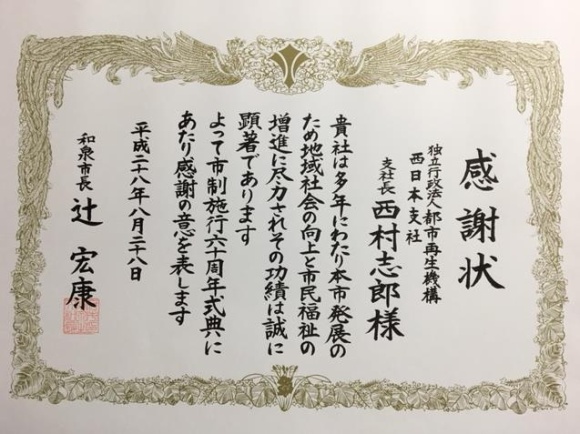 感謝状
独立行政法人都市再生機構
西日本支社
支社長 西村志郎様
貴社は多年にわたり本市発展の
ため地域社会の向上と市民福祉の
増進に尽力されその功績は誠に
顕著であります
よって市制施行六十周年式典に
あたり感謝の意を表します
平成二十八年八月二十八日
和泉市長 辻宏康